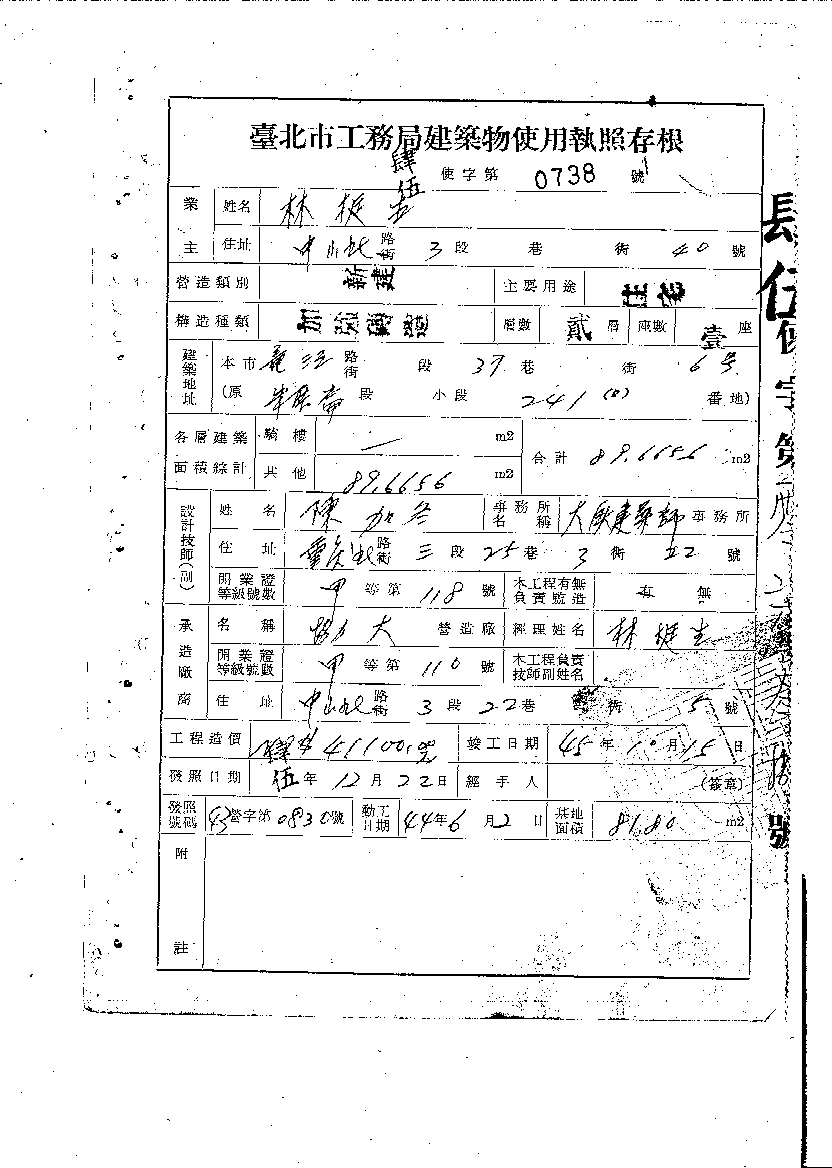 臺北市工務局建築物使用執照存根
肆伍 使字第 0738 號
業主 姓名 林挺生
住址 中山北 路街 3 段 巷 街 40 號
營造類別 新建 主要用途 住宅
構造種類 加強磚造 層數 貳 層 座數 壹 座
建築地址 本市 龍江 路街 段 37 巷 街 6号
(原 段 小段 241 番地)
各層建築面積綜計 騎樓 — m2 合計 89.6656 m2
其他 89.6656 m2
設計技師(副) 姓名 陳加冬 事務所名稱 建築師 事務所
住址 重慶北 路街 三 段 25 巷 3 街 22 號
開業證等級號數 甲 等第 118 號 本工程有無負責監造 有 無
承造廠商 名稱 協大 營造廠 經理姓名 林挺生
開業證等級號數 甲 等第 110 號 本工程負責技師副姓名
住址 中山北 路街 3 段 22 巷 街 5 號
工程造價 41100.00 竣工日期 45 年 10 月 15 日
發照日期 伍 年 12 月 22 日 經手人 (簽章)
發照號碼 43 營字第 0830 號 動工日期 44 年 6 月 2 日 基地面積 81.80 m2
附註
伍使字第
號